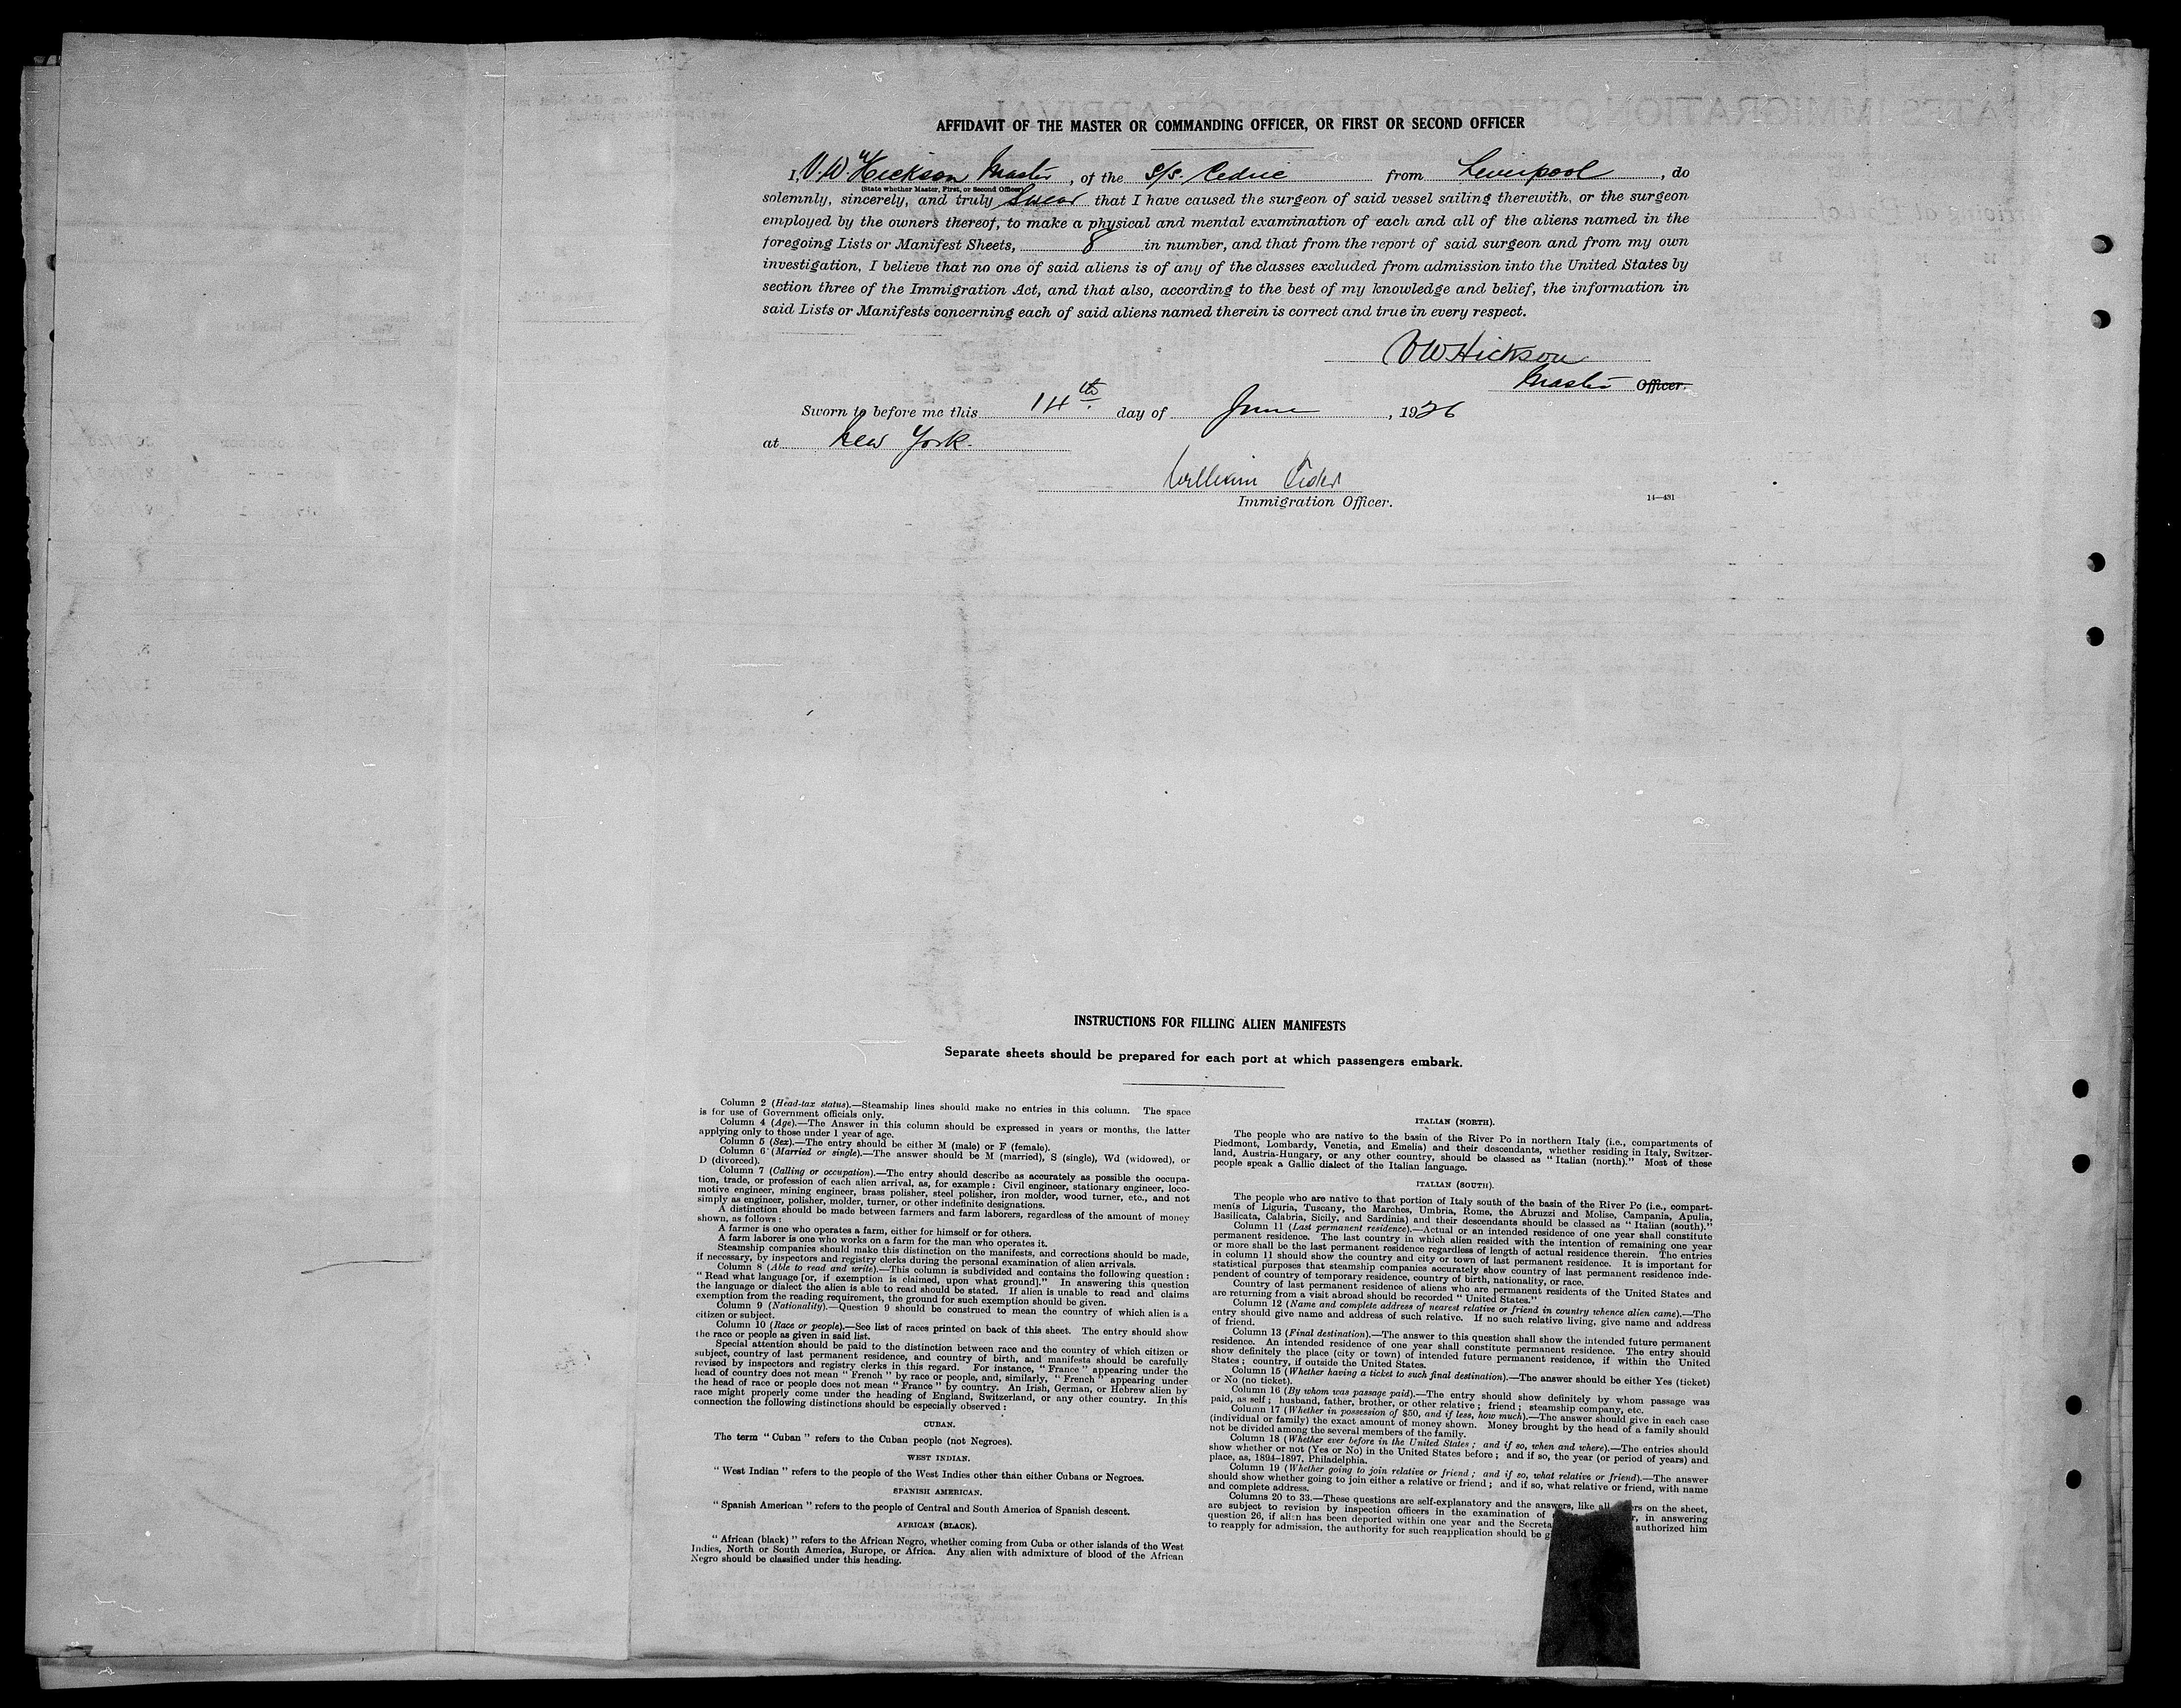 AFFIDAVIT OF THE MASTER OR COMMANDING OFFICER, OR FIRST OR SECOND OFFICER
I, V. W. Hickson Master, of the S/S. Cedric from Liverpool, do
(State whether Master, First, or Second Officer)
solemnly, sincerely, and truly Swear that I have caused the surgeon of said vessel sailing therewith, or the surgeon
employed by the owners thereof, to make a physical and mental examination of each and all of the aliens named in the
foregoing Lists or Manifest Sheets, 8 in number, and that from the report of said surgeon and from my own
investigation, I believe that no one of said aliens is of any of the classes excluded from admission into the United States by
section three of the Immigration Act, and that also, according to the best of my knowledge and belief, the information in
said Lists or Manifests concerning each of said aliens named therein is correct and true in every respect.
VW Hickson
Master Officer.
Sworn to before me this 14th. day of June, 1926
at New York.
William
Immigration Officer.
14—431
INSTRUCTIONS FOR FILLING ALIEN MANIFESTS
Separate sheets should be prepared for each port at which passengers embark.
Column 2 (Head-tax status).—Steamship lines should make no entries in this column. The space
is for use of Government officials only.
Column 4 (Age).—The Answer in this column should be expressed in years or months, the latter
applying only to those under 1 year of age.
Column 5 (Sex).—The entry should be either M (male) or F (female).
Column 6 (Married or single).—The answer should be M (married), S (single), Wd (widowed), or
D (divorced).
Column 7 (Calling or occupation).—The entry should describe as accurately as possible the occupa-
tion, trade, or profession of each alien arrival, as, for example: Civil engineer, stationary engineer, loco-
motive engineer, mining engineer, brass polisher, steel polisher, iron molder, wood turner, etc., and not
simply as engineer, polisher, molder, turner, or other indefinite designations.
A distinction should be made between farmers and farm laborers, regardless of the amount of money
shown, as follows:
A farmer is one who operates a farm, either for himself or for others.
A farm laborer is one who works on a farm for the man who operates it.
Steamship companies should make this distinction on the manifests, and corrections should be made,
if necessary, by inspectors and registry clerks during the personal examination of alien arrivals.
Column 8 (Able to read and write).—This column is subdivided and contains the following question:
"Read what language [or, if exemption is claimed, upon what ground]." In answering this question
the language or dialect the alien is able to read should be stated. If alien is unable to read and claims
exemption from the reading requirement, the ground for such exemption should be given.
Column 9 (Nationality).—Question 9 should be construed to mean the country of which alien is a
citizen or subject.
Column 10 (Race or people).—See list of races printed on back of this sheet. The entry should show
the race or people as given in said list.
Special attention should be paid to the distinction between race and the country of which citizen or
subject, country of last permanent residence, and country of birth, and manifests should be carefully
revised by inspectors and registry clerks in this regard. For instance, "France" appearing under the
head of country does not mean "French" by race or people, and, similarly, "French" appearing under
the head of race or people does not mean "France" by country. An Irish, German, or Hebrew alien by
race might properly come under the heading of England, Switzerland, or any other country. In this
connection the following distinctions should be especially observed:
CUBAN.
The term "Cuban" refers to the Cuban people (not Negroes).
WEST INDIAN.
"West Indian" refers to the people of the West Indies other than either Cubans or Negroes.
SPANISH AMERICAN.
"Spanish American" refers to the people of Central and South America of Spanish descent.
AFRICAN (BLACK).
"African (black)" refers to the African Negro, whether coming from Cuba or other islands of the West
Indies, North or South America, Europe, or Africa. Any alien with admixture of blood of the African
Negro should be classified under this heading.
ITALIAN (NORTH).
The people who are native to the basin of the River Po in northern Italy (i.e., compartments of
Piedmont, Lombardy, Venetia, and Emelia) and their descendants, whether residing in Italy, Switzer-
land, Austria-Hungary, or any other country, should be classed as "Italian (north)." Most of these
people speak a Gallic dialect of the Italian language.
ITALIAN (SOUTH).
The people who are native to that portion of Italy south of the basin of the River Po (i.e., compart-
ments of Liguria, Tuscany, the Marches, Umbria, Rome, the Abruzzi and Molise, Campania, Apulia,
Basilicata, Calabria, Sicily, and Sardinia) and their descendants should be classed as "Italian (south)."
Column 11 (Last permanent residence).—Actual or an intended residence of one year shall constitute
permanent residence. The last country in which alien resided with the intention of remaining one year
or more shall be the last permanent residence regardless of length of actual residence therein. The entries
in column 11 should show the country and city or town of last permanent residence. It is important for
statistical purposes that steamship companies accurately show country of last permanent residence inde-
pendent of country of temporary residence, country of birth, nationality, or race.
Country of last permanent residence of aliens who are permanent residents of the United States and
are returning from a visit abroad should be recorded "United States."
Column 12 (Name and complete address of nearest relative or friend in country whence alien came).—The
entry should give name and address of such relative. If no such relative living, give name and address
of friend.
Column 13 (Final destination).—The answer to this question shall show the intended future permanent
residence. An intended residence of one year shall constitute permanent residence. The entry should
show definitely the place (city or town) of intended future permanent residence, if within the United
States; country, if outside the United States.
Column 15 (Whether having a ticket to such final destination).—The answer should be either Yes (ticket)
or No (no ticket).
Column 16 (By whom was passage paid).—The entry should show definitely by whom passage was
paid, as self; husband, father, brother, or other relative; friend; steamship company, etc.
Column 17 (Whether in possession of $50, and if less, how much).—The answer should give in each case
(individual or family) the exact amount of money shown. Money brought by the head of a family should
not be divided among the several members of the family.
Column 18 (Whether ever before in the United States; and if so, when and where).—The entries should
show whether or not (Yes or No) in the United States before; and if so, the year (or period of years) and
place, as, 1894–1897, Philadelphia.
Column 19 (Whether going to join relative or friend; and if so, what relative or friend).—The answer
should show whether going to join either a relative or friend; and if so, what relative or friend, with name
and complete address.
Columns 20 to 33.—These questions are self-explanatory and the answers, like all on the sheet,
are subject to revision by inspection officers in the examination of in answering
question 26, if alien has been deported within one year and the authorized him
to reapply for admission, the authority for such reapplication should be